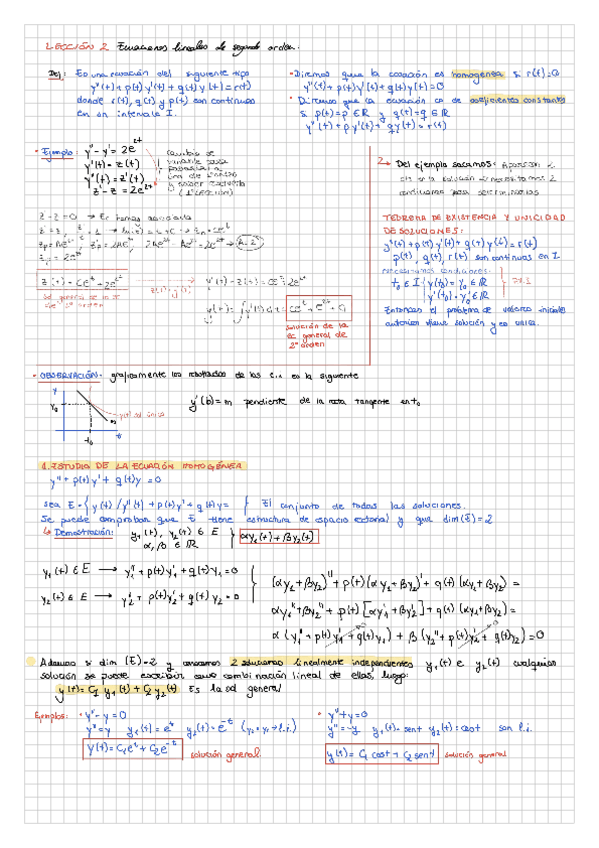 LECCIÓN 2 Ecuaciones lineales de segundo orden.
Def: Es una ecuación del siguiente tipo
y''(t) + p(t) y'(t) + q(t) y(t) = r(t)
donde r(t), q(t) y p(t) son continuas
en un intervalo I.
• Diremos que la ecuación es homogenea si r(t)=0
y''(t) + p(t) y'(t) + q(t) y(t) = 0
• Diremos que la ecuación es de coeficientes constantes
si p(t) = p ∈ ℝ y q(t) = q ∈ ℝ
y''(t) + p y'(t) + q y(t) = r(t)
• Ejemplo: y'' - y' = 2e^{2t}
y'(t) = z(t)
y''(t) = z'(t)
z' - z = 2e^{2t}
cambio de
variable para
una de 1º orden
y saber resolverla
(1º lección)
z' - z = 0 → Ec homog asociada
z_p = Ae^{2t} z'_p = 2Ae^{2t} 2Ae^{2t} - Ae^{2t} = 2e^{2t} → A = 2
z_p = 2e^{2t}
z(t) = Ce^t + 2e^{2t}
de 1º orden
y'(t) = z(t) = Ce^t + 2e^{2t}
y(t) = ∫ y'(t) dt = Ce^t + e^{2t} + D
solución de la
ec general de
2º orden
2 → Del ejemplo sacamos: Aparecen 2
cts en la solución → necesitamos 2
condiciones para determinarlas
TEOREMA DE EXISTENCIA Y UNICIDAD
DE SOLUCIONES:
y''(t) + p(t) y'(t) + q(t) y(t) = r(t)
p(t), q(t), r(t) son continuas en I
necesitamos condiciones:
t₀ ∈ I { y(t₀) = y₀ ∈ ℝ
y'(t₀) = y'₀ ∈ ℝ
Entonces el problema de valores iniciales
anterior tiene solución y es única.
• OBSERVACIÓN: graficamente los resultados de las c.i. es la siguiente
y
y₀
t₀
t
y(t) sol única
m
y'(t₀) = m pendiente de la recta tangente en t₀
1. ESTUDIO DE LA ECUACIÓN HOMOGÉNEA
y'' + p(t) y' + q(t) y = 0
sea E = { y(t) / y''(t) + p(t) y' + q(t) y = } El conjunto de todas las soluciones.
Se puede comprobar que E tiene estructura de espacio vectorial y que dim(E) = 2
↳ Demostración: y₁(t), y₂(t) ∈ E
α, β ∈ ℝ
αy₁(t) + βy₂(t)
y₁(t) ∈ E → y₁'' + p(t) y₁' + q(t) y₁ = 0
y₂(t) ∈ E → y₂'' + p(t) y₂' + q(t) y₂ = 0
(αy₁ + βy₂)'' + p(t) (αy₁ + βy₂)' + q(t) (αy₁ + βy₂) =
αy₁'' + βy₂'' + p(t) [αy₁' + βy₂'] + q(t) (αy₁ + βy₂) =
α (y₁'' + p(t) y₁' + q(t) y₁) + β (y₂'' + p(t) y₂' + q(t) y₂) = 0
Además si dim (E) = 2 y conocemos 2 soluciones linealmente independientes y₁(t) e y₂(t) cualquier
solución se puede escribir como combinación lineal de ellas, luego:
y(t) = C₁ y₁(t) + C₂ y₂(t) Es la sol general
Ejemplos: • y'' - y = 0
y'' = y y₁(t) = e^t y₂(t) = e^{-t} (y₂ e y₁ → l.i.)
y(t) = C₁e^t + C₂e^{-t}
solución general.
• y'' + y = 0
y'' = -y y₁(t) = sent y₂(t) = cost son l.i.
y(t) = C₁ cost + C₂ sent
solución general